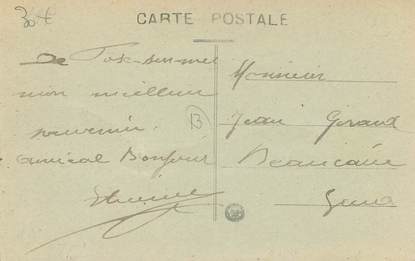 30 €
CARTE POSTALE
De Fos-sur-mer
mon meilleur
souvenir.
Amical Bonjour
Etienne
B
Monsieur
Jean Giraud
Beaucaire
Gard